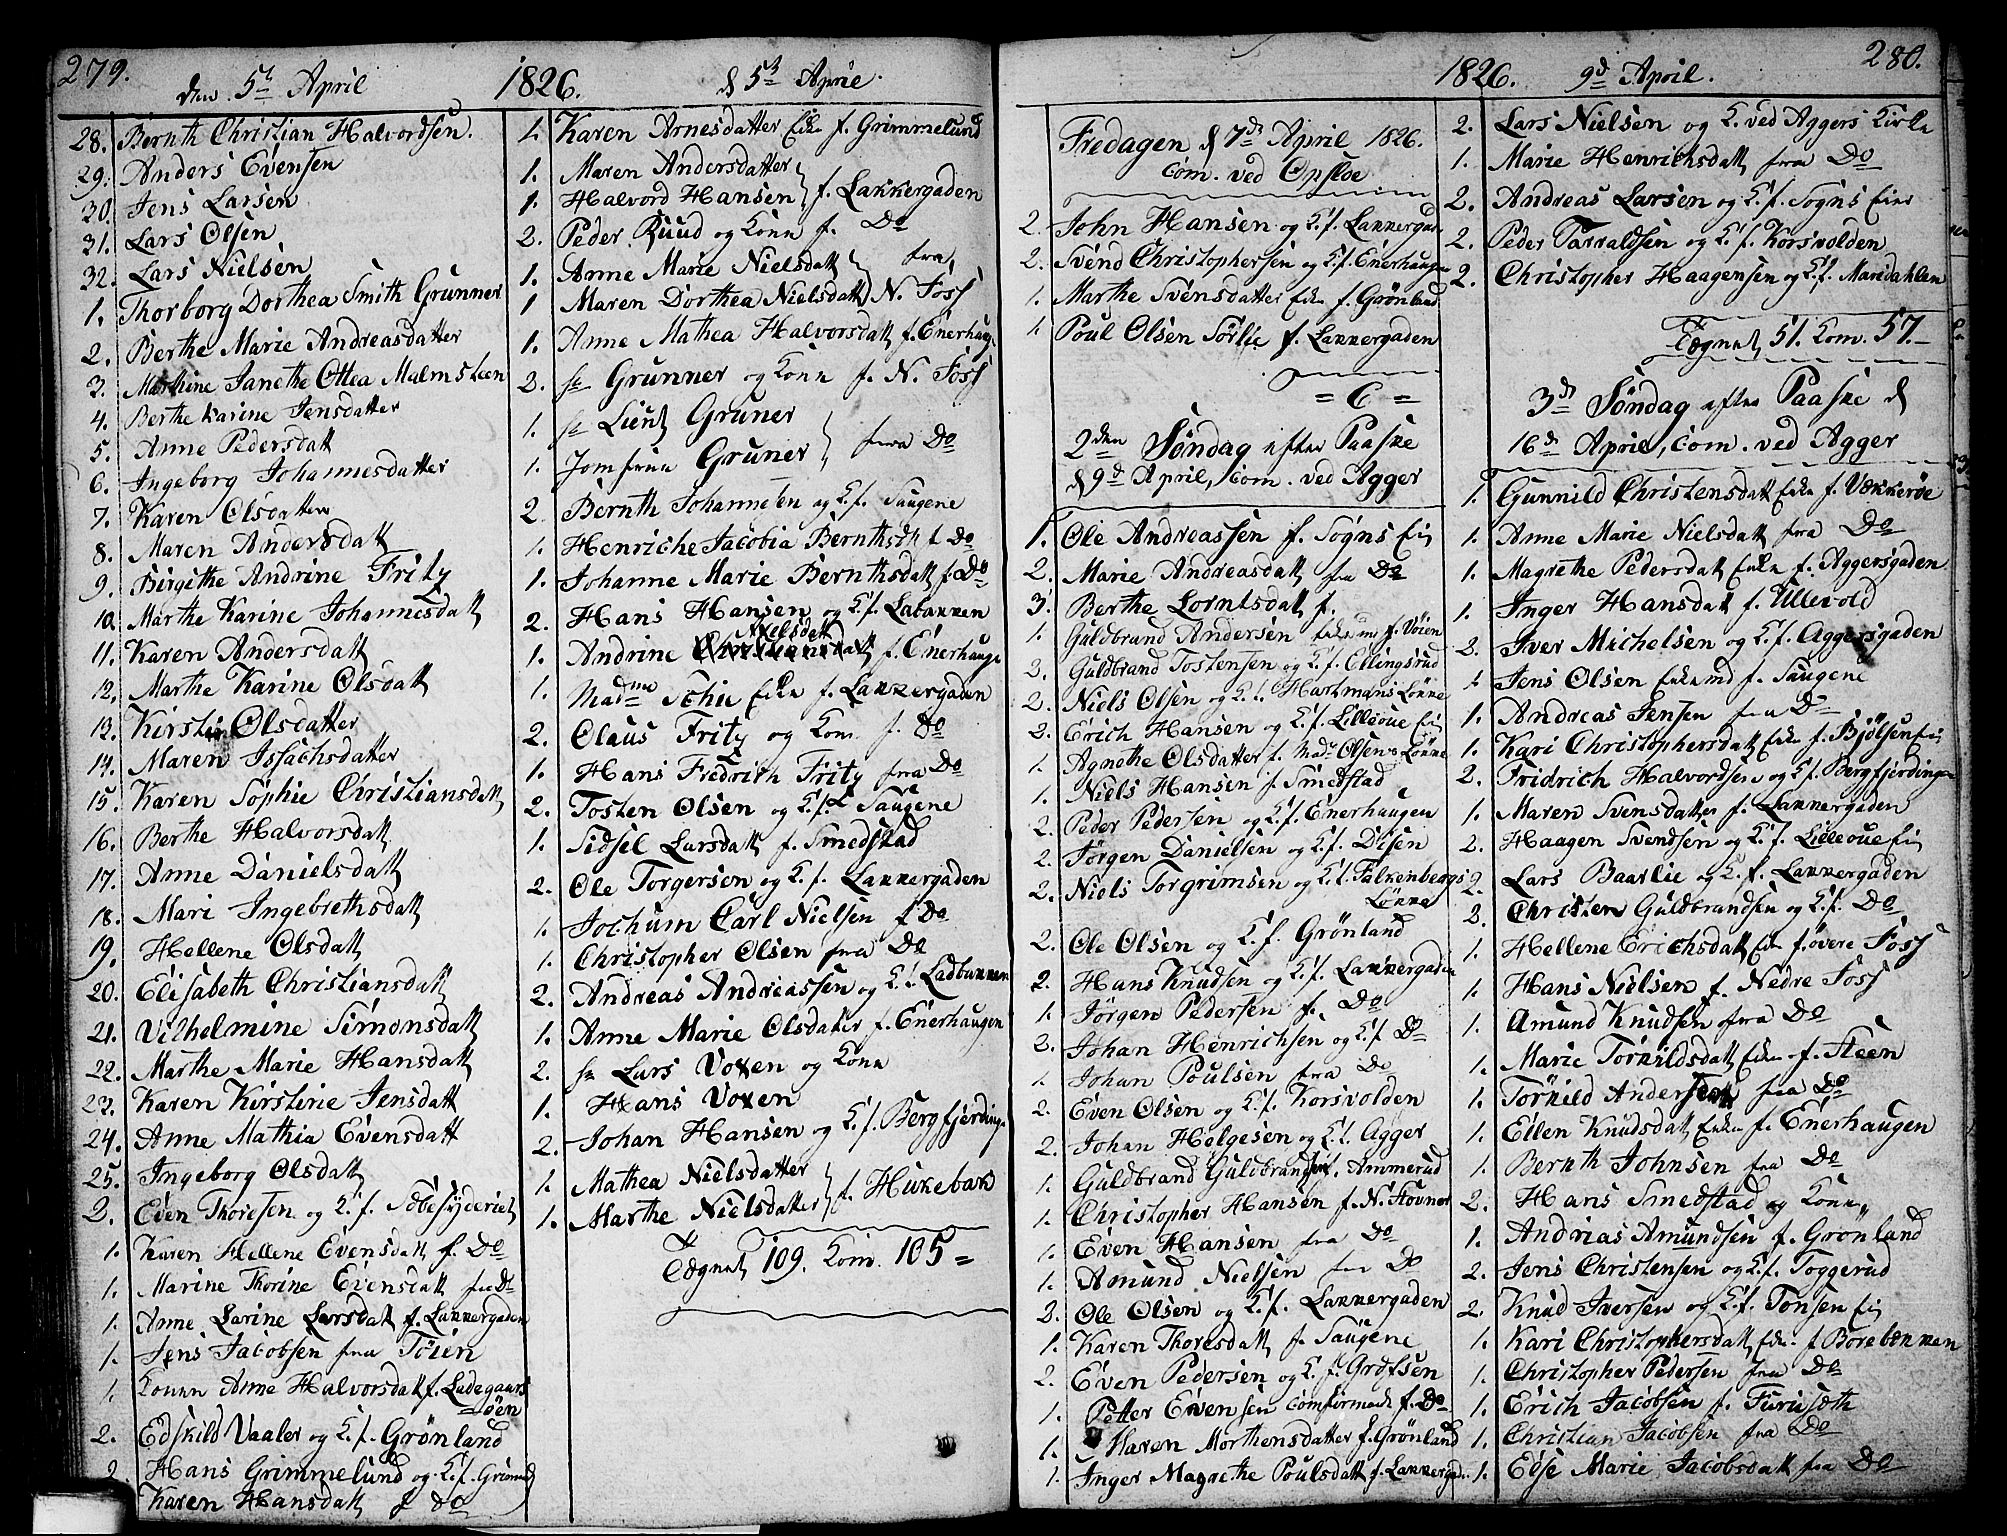 279.
den 5t April 1826. d 5t Aprie.
28. Bernth Christian Halvordsen.
29. Anders Evensen
30. Jens Larsen
31. Lars Olsen
32. Lars Nielsen
1. Thorborg Dorthea Smith Grunner
2. Berthe Marie Andreasdatter
3. Marthine Janethe Ottea Malmsteen
4. Berthe Karine Jensdatter
5. Anne Pedersdatt
6. Ingeborg Johannesdatter
7. Karen Olsdatter
8. Maren Andersdatt
9. Birgithe Andrine Fritz
10. Marthe Karine Johannesdatt
11. Karen Andersdatt
12. Marthe Karine Olsdatt
13. Kirstin Olsdatter
14. Maren Issachsdatter
15. Karen Sophie Christiansdatt
16. Berthe Halvorsdatt
17. Anne Danielsdatt
18. Mari Ingebrethsdatt
19. Hellene Olsdatt
20. Elisabeth Christiansdatt
21. Vilhelmine Simonsdatt
22. Marthe Marie Hansdatt
23. Karen Kirstine Jensdatt
24. Anne Mathia Evensdatt
25. Ingeborg Olsdatt
2. Even Thoresen og K. f.
1. Karen Hellene Evensdatt f. Do
1. Marine Thorine Evensdatt fra Do
1. Anne Larine Larsdatt f. Lakkergaden
1. Jens Jacobsen fra Töien
1. Konen Anne Halvorsdatt f. Ladegaards
=öen
2. Edskild Vaaler og K. f. Grönland
2. Hans Grimmelund og K. f. Grimmel
Karen Hansdatt f Do
1. Karen Arnesdatter Enke f. Grimmelund
1. Maren Andersdatter
1. Halvord Hansen f. Lakkergaden
2. Peder Ruud og Kone f. Do
1. Anne Marie Nielsdatt fra
1 Maren Dorthea Nielsdatt N. Foss
1. Anne Mathea Halvorsdatt f. Enerhaug
2. Hr Grunner og Kone f. N. Foss
1. Hr Lieut Gruner
1. Jomfrue Gruner fra Do
2. Bernth Johannesen og K. f. Saugene
1. Henriche Jacobia Bernthsdt f Do
1. Johanne Marie Bernthsdatt f. Do
2. Hans Hansen og K. f. Labakken
Axelsdatt
1. Andrine Christiansdatt f. Enerhauge
1. Madme Schie Enke f. Lakkergaden
2. Olaus Fritz og Kone f. Do
1. Hans Fredrich Fritz fra Do
2. Tosten Olsen og K. f. Saugene
1. Sidsel Larsdatt f. Smedstad
2. Ole Torgersen og K. f. Lakkergaden
1. Jochum Carl Nielsen f Do
1. Christopher Olsen fra Do
2. Andreas Andreassen og K. f. Ladbakken
1. Anne Marie Olsdatter f. Enerhaugen
2. Hr Lars Voxen og Kone
1. Hans Voxen
2. Johan Hansen og K. f. Bergfjerding
1. Mathea Nielsdatter
1. Marthe Nielsdatter f. Hukebak
Tægnet 109. Kom. 105 =
1826. 9d April. 280.
Fredagen d 7d April 1826.
Com. ved Opsloe
2. John Hansen og K. f. Lakkergad
2. Svend Christophersen og K. f. Enerhaugen
1. Marthe Svensdatter Enke f. Grönland
1. Poul Olsen Sörlie f. Lakkergaden
= 6 =
2den Söndag efter Paaske
d 9d April, Com. ved Agger
1. Ole Andreassen f. Sogns Eie
2. Marie Andreasdatt fra Do
3. Berthe Lorntsdatt f.
1. Guldbrand Andersen Enkemd f. Vöien
2. Guldbrand Tostensen og K. f. Ellingsrud
2. Niels Olsen og K. f. Hartmans Lökke
2. Erich Hansen og K. f. Lilleoue Eie
1. Agnethe Olsdatter f. Mad. Olsens Lökke
1. Niels Hansen f. Smedstad
2. Peder Pedersen og K. f. Enerhaugen
2. Jörgen Danielsen og K. f. Disen
2. Niels Torgrimsen og K. f. Falkenbergs
Lökke
2. Ole Olsen og K. f. Grönland
2. Hans Knudsen og K. f. Lakkergaden
1. Jörgen Pedersen f. Do
2. Johan Henrichsen og K. f Do
1. Johan Poulsen fra Do
2. Even Olsen og K. f. Korsvolden
2. Johan Helgesen og K. f. Agger
1. Guldbrand Guldbrandsen f. Ammerud
1. Christopher Hansen f. N. Stovner
1. Even Hansen fra Do
1. Amund Nielsen fra Do
2. Ole Olsen og K. f. Lakkergaden
1. Karen Thoresdatt f. Saugene
2. Even Pedersen og K. f. Grefsen
1. Petter Evensen Comfirmand f. Do
1. Maren Morthensdatter f. Grönland
1. Inger Magrethe Poulsdatt f. Lakkergad.
2. Lars Nielsen og K. ved Aggers Kirke
1. Marie Henrichsdatt fra Do
2. Andreas Larsen og K. f. Sogns Eier
2. Peder Tarraldsen og K. f. Korsvolden
2. Christopher Haagensen og K. f. Maridahlen
Tægnet 51. Kom. 57.-
3d Söndag efter Paaske d
16d April, Com. ved Agger
1. Gunnild Christensdatt Enke f. Vækkeröe
1. Anne Marie Nielsdatt fra Do
1. Magrethe Pedersdatt Enke f. Aggersgaden
1. Inger Hansdatt f. Ullevold
2. Iver Michelsen og K. f. Aggersgaden
1. Jens Olsen Enkemd f. Saugene
1. Andreas Jensen fra Do
1. Kari Christophersdatt Enke f. Bjölsen Eie
2. Fridrich Halvordsen og K. f. Bergfjerdingen
1. Maren Svensdatter f. Lakkergaden
2. Haagen Svendsen og K. f. Lilleoue Eie
2. Lars Baarlie og K. f. Lakkergaden
2. Christen Guldbrandsen og K. f. Do
1. Hellene Erichsdatt Enke f. övere Foss
1. Hans Nielsen f. Nedre Foss
1. Amund Knudsen fra Do
1. Marie Torkildsdatt Enke f. Steen
1. Törkild Andersen fra Do
1. Ellen Knudsdatt Enke f. Enerhaugen
1. Bernth Johnsen fra Do
2. Hans Smedstad og Kone
1. Andrias Amundsen f. Grönland
2. Jens Christensen og K. f. Toggerud
2. Knud Iversen og K. f. Tonsen Eie
1. Kari Christophersdatt Enke f Borebækken
1. Christopher Pedersen fra Do
1. Erich Jacobsen f. Furuseth
1. Christian Jacobsen fra Do
1. Else Marie Jacobsdatt fra Do